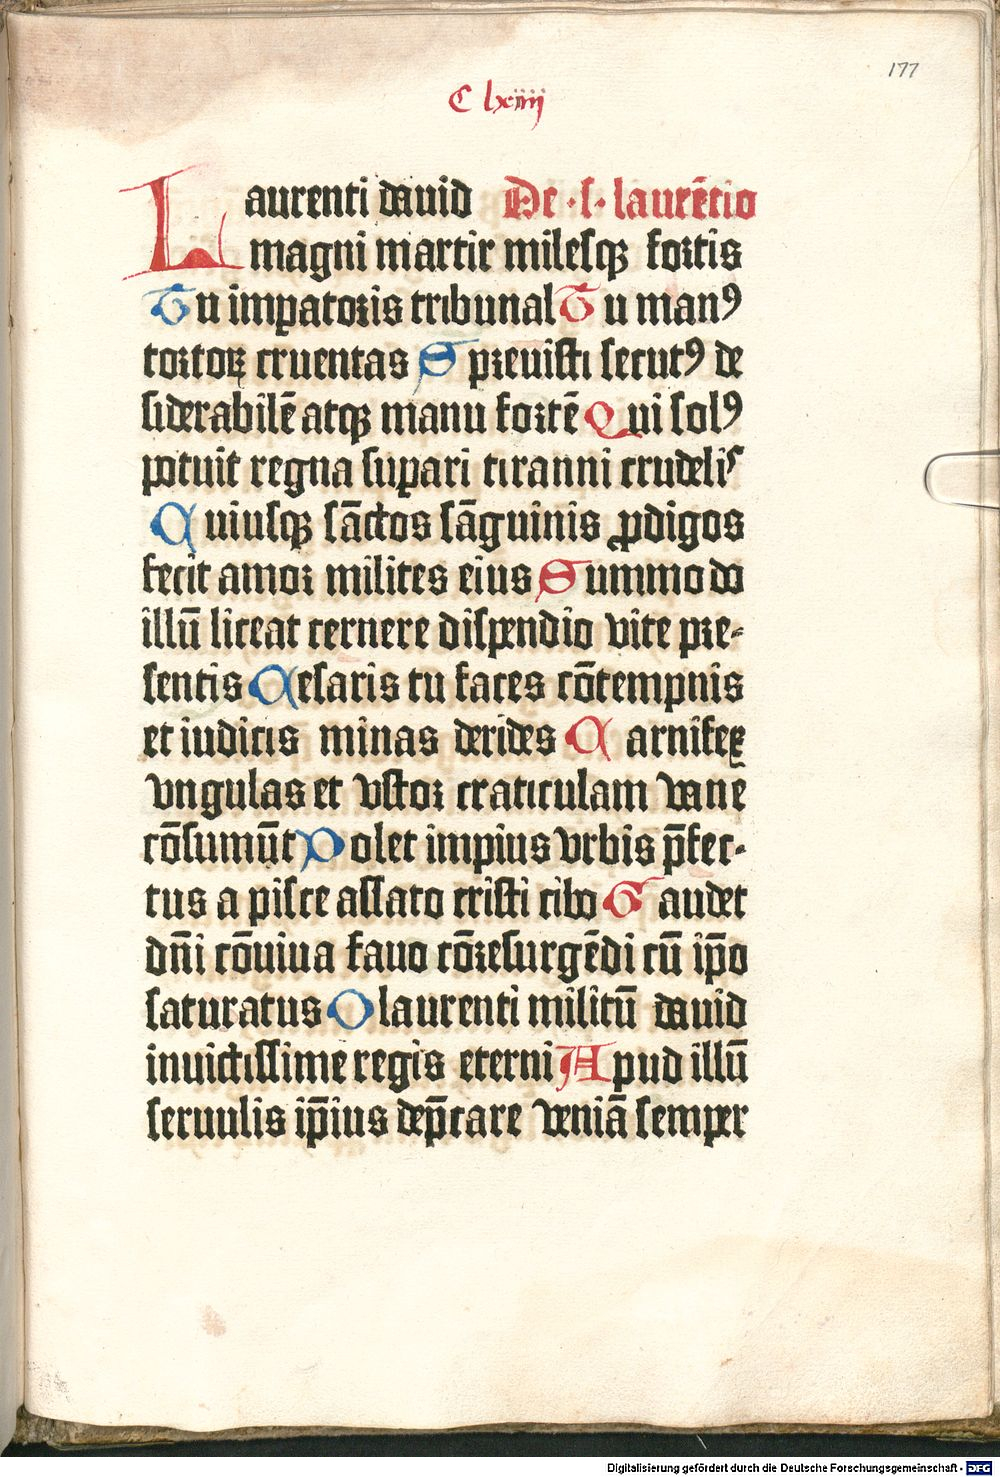 177
C lxiiij
Laurenti dauid De · s · laurẽtio
magni martir milesqꝫ fortis
Tu imꝑatoris tribunal Tu manꝰ
tortoꝝ cruentas Spreuisti secutꝰ de
siderabilẽ atqꝫ manu fortẽ Qui solꝰ
potuit regna suꝑari tiranni crudelis
Cuiusqꝫ sãctos sãguinis ꝓdigos
fecit amor milites eius Summodo
illũ liceat cernere dispendio vite pre-
sentis Cesaris tu faces cõtempnis
et iudicis minas derides Carnifex
vngulas et vstor craticulam vane
cõsumũt Dolet impius vrbis p̃fec-
tus a pisce assato cristi cibo Gaudet
dñi cõuiua fauo cõresurgẽdi cũ ip̃o
saturatus O laurenti militũ dauid
inuictissime regis eterni Apud illũ
seruulis ip̃ius dep̃care veniã semper
Digitalisierung gefördert durch die Deutsche Forschungsgemeinschaft - DFG